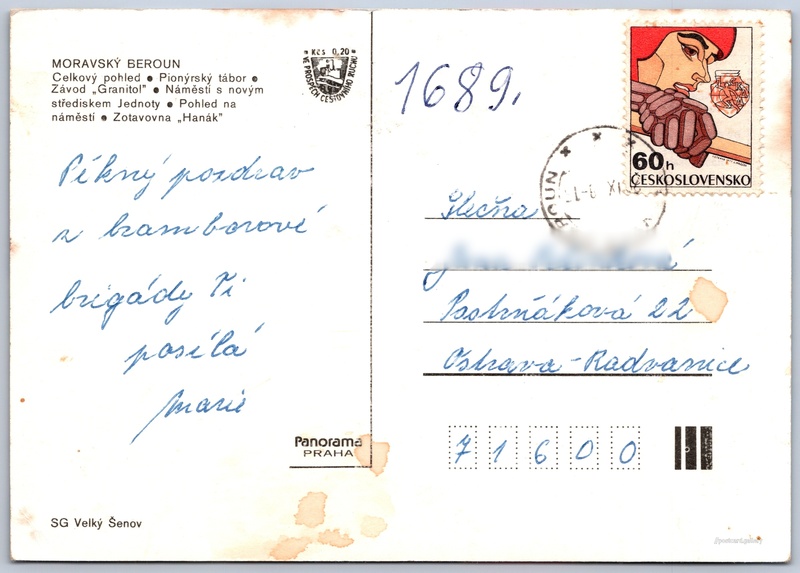 MORAVSKÝ BEROUN
Celkový pohled ● Pionýrský tábor ●
Závod „Granitol" ● Náměstí s novým
střediskem Jednoty ● Pohled na
náměstí ● Zotavovna „Hanák"
Kčs 0,20
VE PROSPĚCH CESTOVNÍHO RUCHU
1689,
60h
ČESKOSLOVENSKO
ROUN
XI
Pěkný pozdrav
z bramborové
brigády Ti
posílá
Marie
Slečna
Postrňáková 22
Ostrava-Radvanice
71600
Panorama
PRAHA
SG Velký Šenov